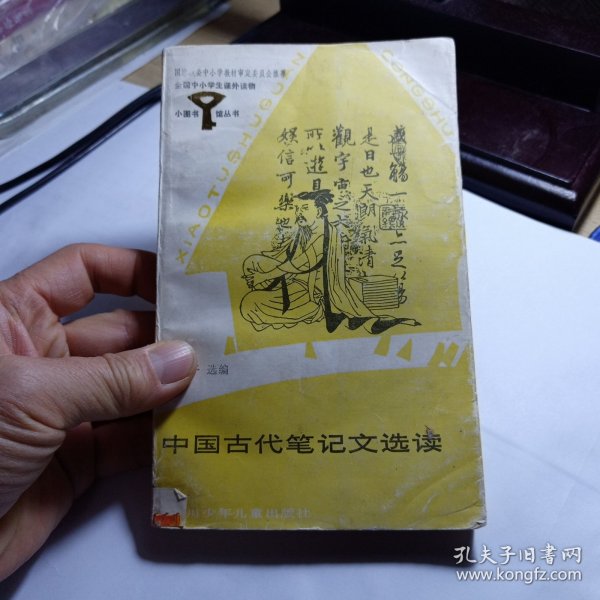 中小学教材审定委员会推荐
全国中小学生课外读物
小图书馆丛书
XIAOTUSHUGUAN
CONGSHU
一觞一詠亦足以暢
是日也天朗氣清
觀宇宙之大
所以遊目
娱信可樂也
选编
中国古代笔记文选读
川少年儿童出版社
孔夫子旧书网
www.kongfz.com